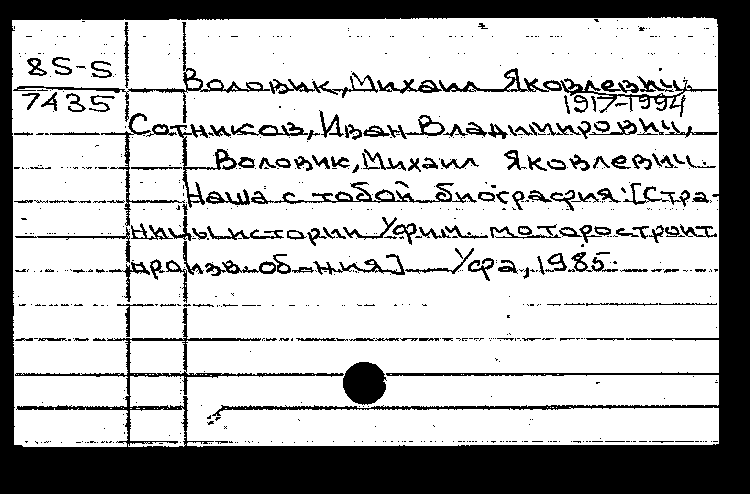 8S-S
7435
Воловик, Михаил Яковлевич.
1917-1994
Сотников, Иван Владимирович,
Воловик, Михаил Яковлевич.
Наша с тобой биография: [Стра-
ницы истории Уфим. моторостроит.
произв. об-ния] Уфа, 1985.